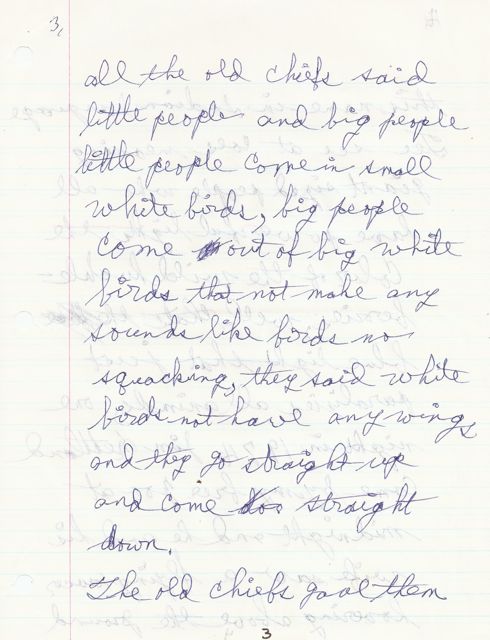 3,
all the old chiefs said
little people and big people.
little people come in small
white birds, big people
come out of big white
birds that not make any
sounds like birds no
squacking, they said white
birds not have any wings
and they go straight up
and come straight
down.
The old chiefs goal them
3